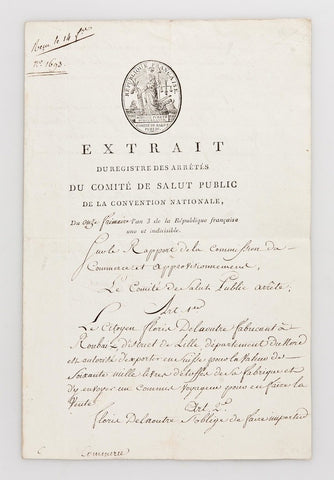 Reçu le 14 fre
No. 1693
RÉPUBLIQUE FRANÇAISE
COMITÉ DE SALUT
PUBLIC
EXTRAIT
DU REGISTRE DES ARRÊTÉS
DU COMITÉ DE SALUT PUBLIC
DE LA CONVENTION NATIONALE,
Du onze frimaire l'an 3 de la République française
une et indivisible.
Sur le Rapport de la Commission de
Commerce et approvisionnement,
Le Comité de Salut Public arrête;
Art. 1er
Le Citoyen floris Delaoutre fabricant à
Roubaix district de Lille département du Nord
est autorisé d'exporter en suisse pour la valeur de
Soixante mille livres d'étoffes de sa fabrique et
d'y envoyer un commis voyageur pour en faire la
Vente
Art. 2e
floris Delaoutre s'oblige de faire importer
Commerce